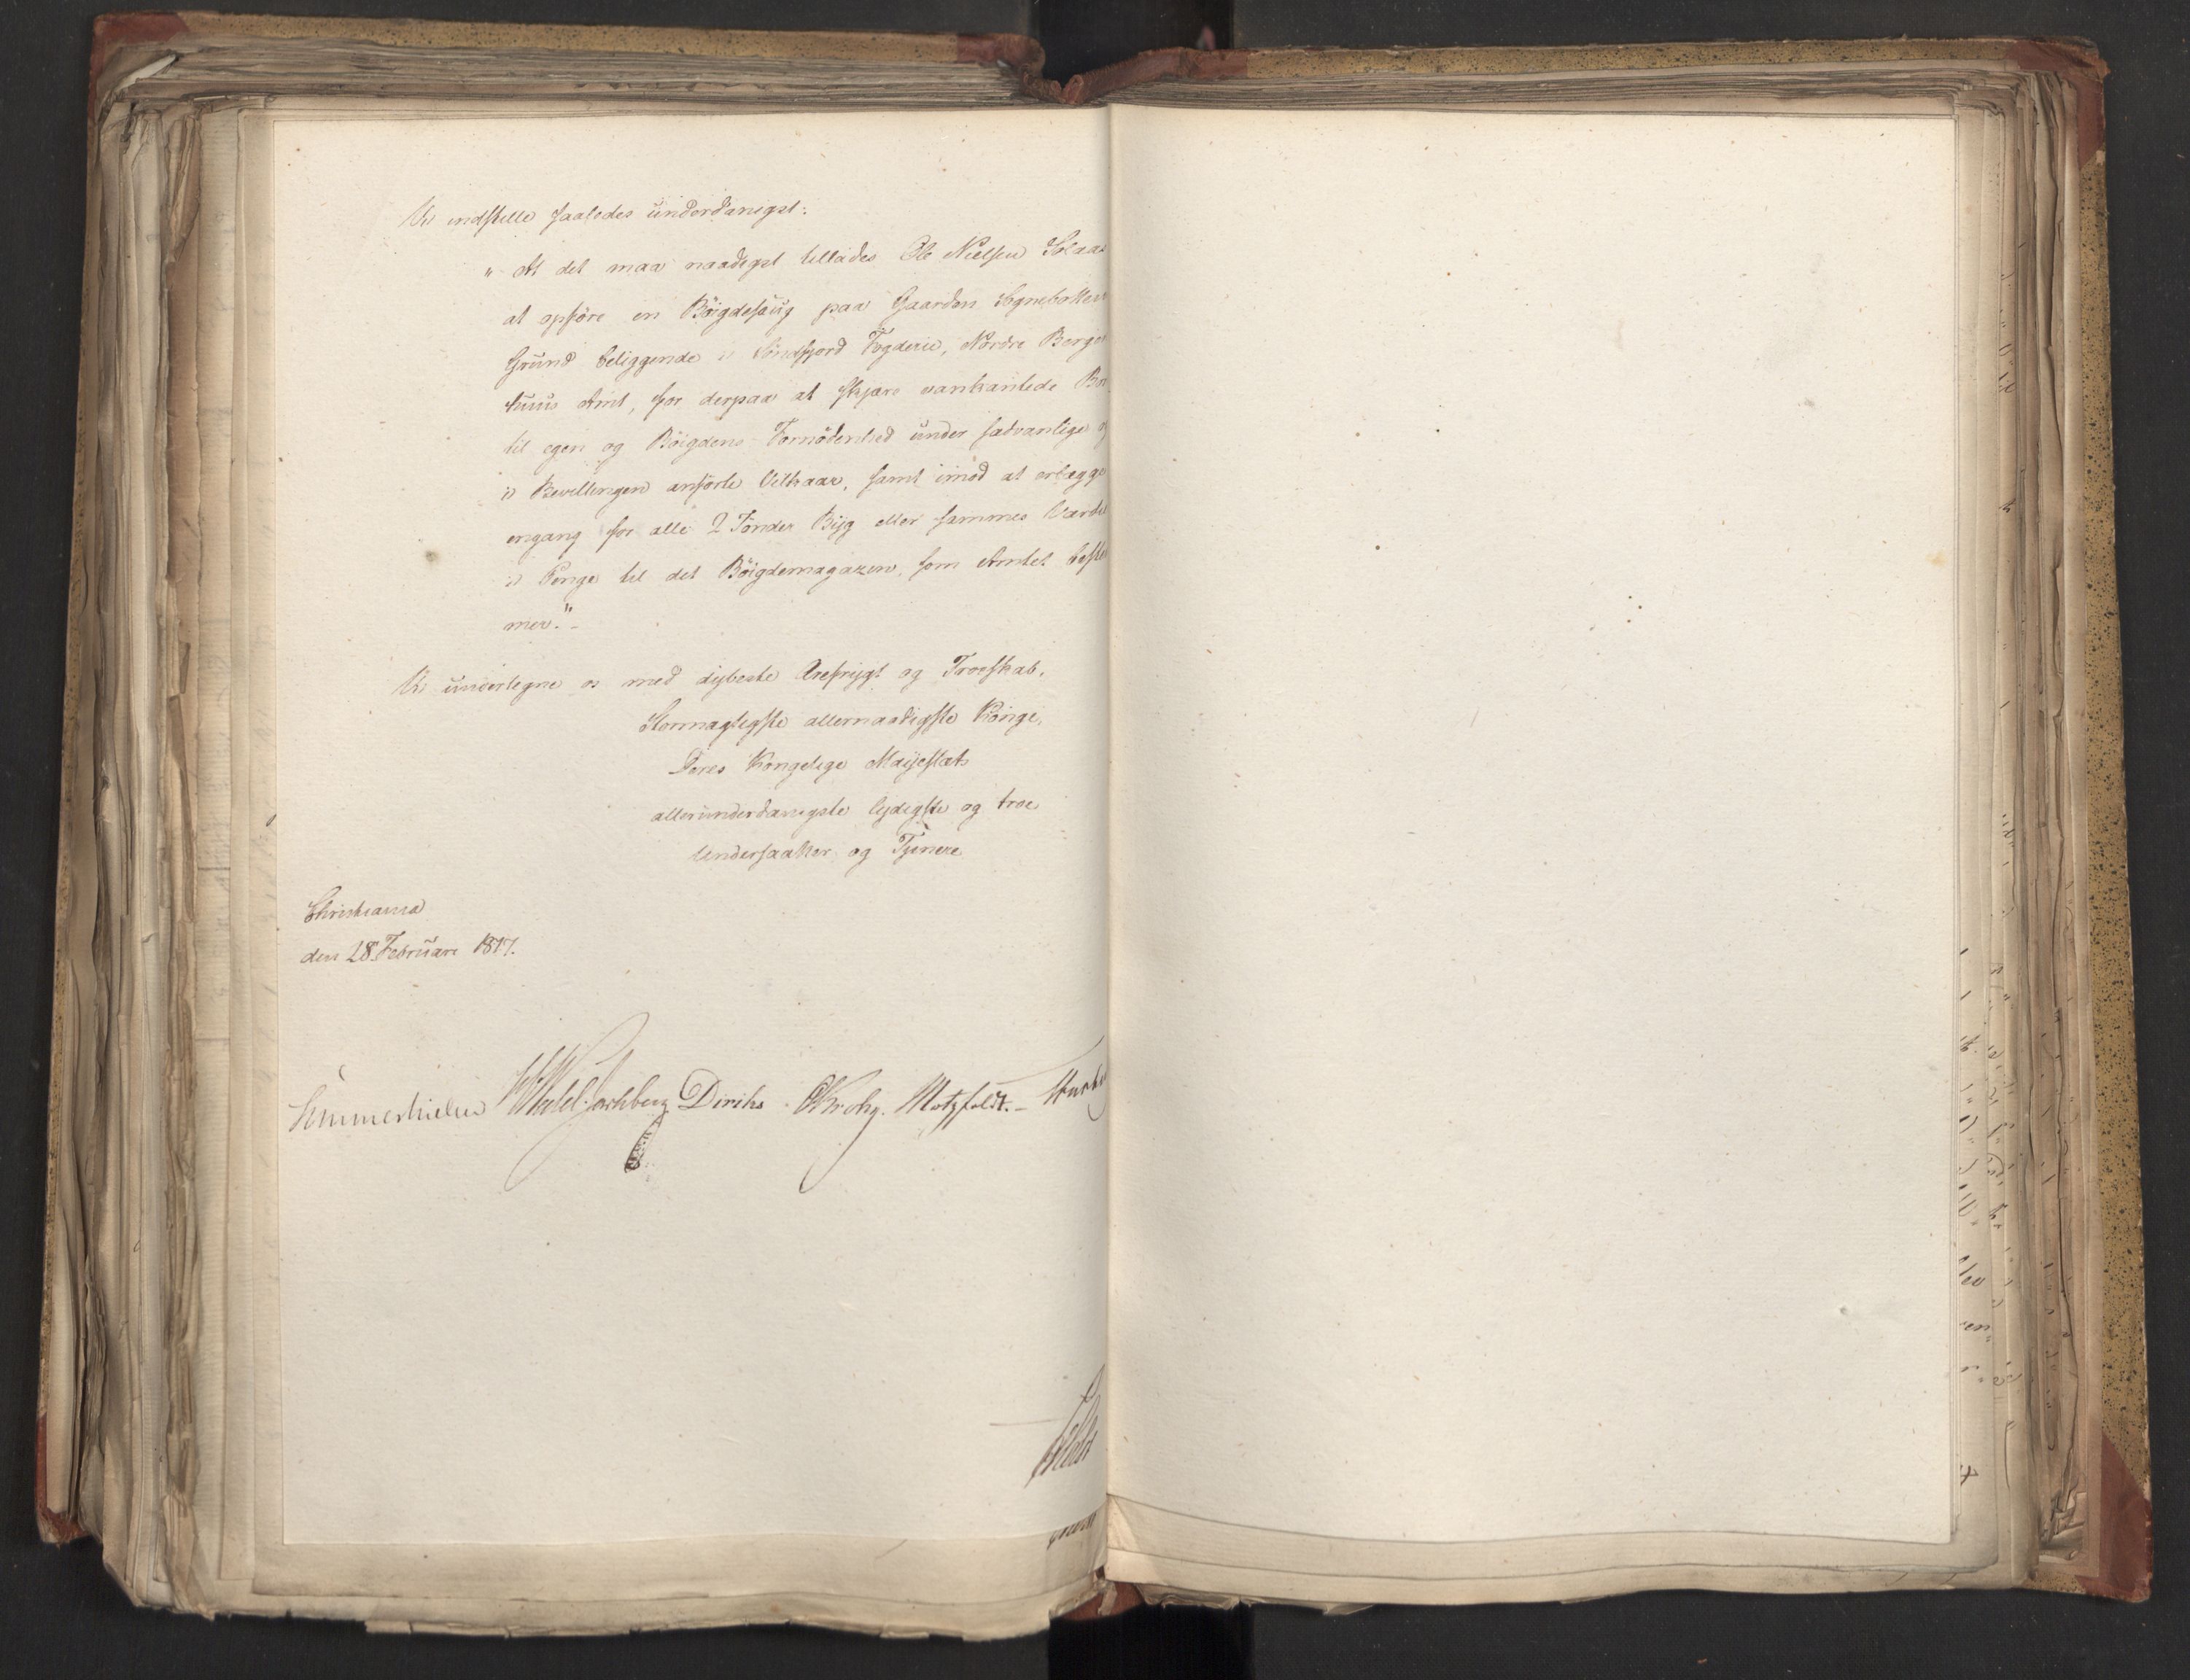 Vi indstille saaledes underdanigst:
„At det maa naadigst tillades Ole Nielsen Solaas
at opføre en Bøigdesaug paa Gaarden Sognebotten
Grund beliggende i Søndfjord Fogderie, Nordre Bergen
huus Amt, for derpaa at skjære vankantede Bor
til egen og Bøigdens Fornødenhed under sædvanlige og
i Bevillingen anførte Vilkaar, samt imod at erlægge
engang for alle 2 Tønder Byg eller sammes Værdie
i Penge til det Bøigdemagazin, som Amtet bestem
mer.“ -
Vi undertegne os med dybeste Ærefrygt og Troeskab,
Stormægtigste allernaadigste Konge,
Deres Kongelige Majestæts
allerunderdanigste lydigste og troe
Undersaatter og Tjenere
Christiania
den 28. Februari 1817.
Sommerhielm Wedel-Jarlsberg Diriks CKrohg. Motzfeldt. -
Holst